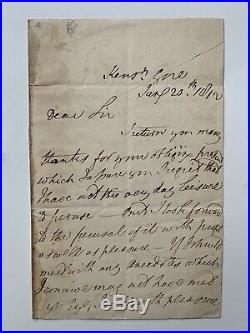 Kensn. Gore
Jany 20th. 1812
Dear Sir
I return you many
thanks for your obliging present
which I assure you I regret that
I have not this very day leisure
to peruse — But I look forward
to the perusal of it with
as well as pleasure —
with any anecdotes which
may not have
pleasure